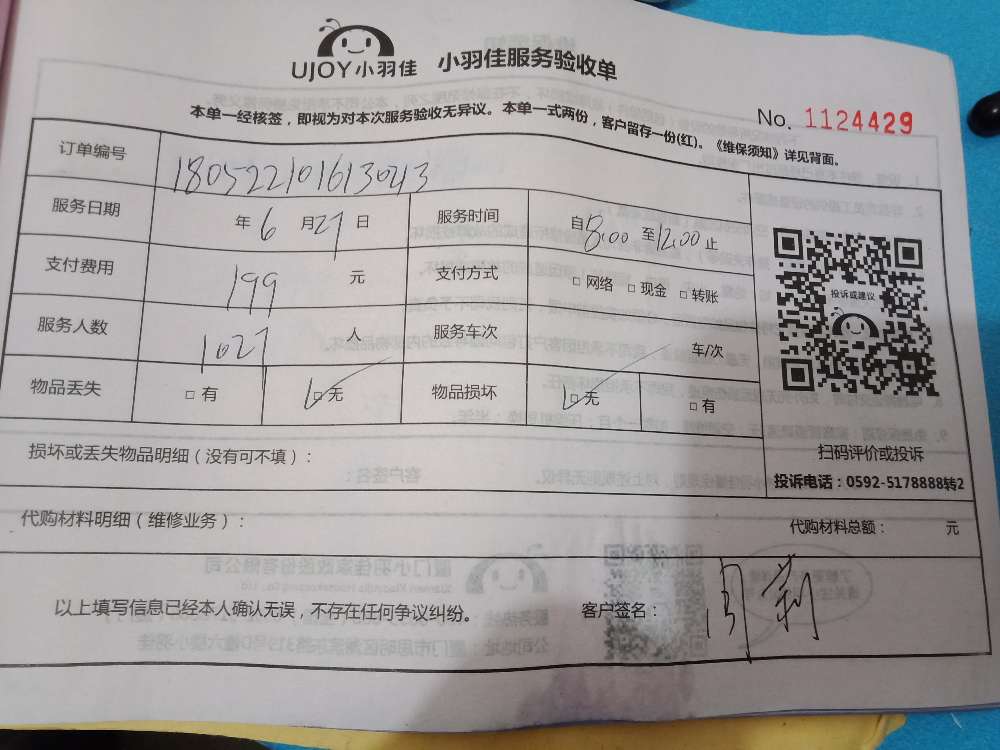 UJOY小羽佳 小羽佳服务验收单
No. 1124429
本单一经核签，即视为对本次服务验收无异议。本单一式两份，客户留存一份(红)。《维保须知》详见背面。
订单编号 180522101613043
服务日期 年 6 月 27 日 服务时间 自 8:00 至 12:00 止
支付费用 199 元 支付方式 □ 网络 □ 现金 □ 转账
服务人数 1027 人 服务车次 车/次
物品丢失 □ 有 □ 无 物品损坏 □ 无 □ 有
投诉或建议
扫码评价或投诉
投诉电话：0592-5178888转2
损坏或丢失物品明细（没有可不填）：
代购材料明细（维修业务）： 代购材料总额： 元
以上填写信息已经本人确认无误，不存在任何争议纠纷。 客户签名：